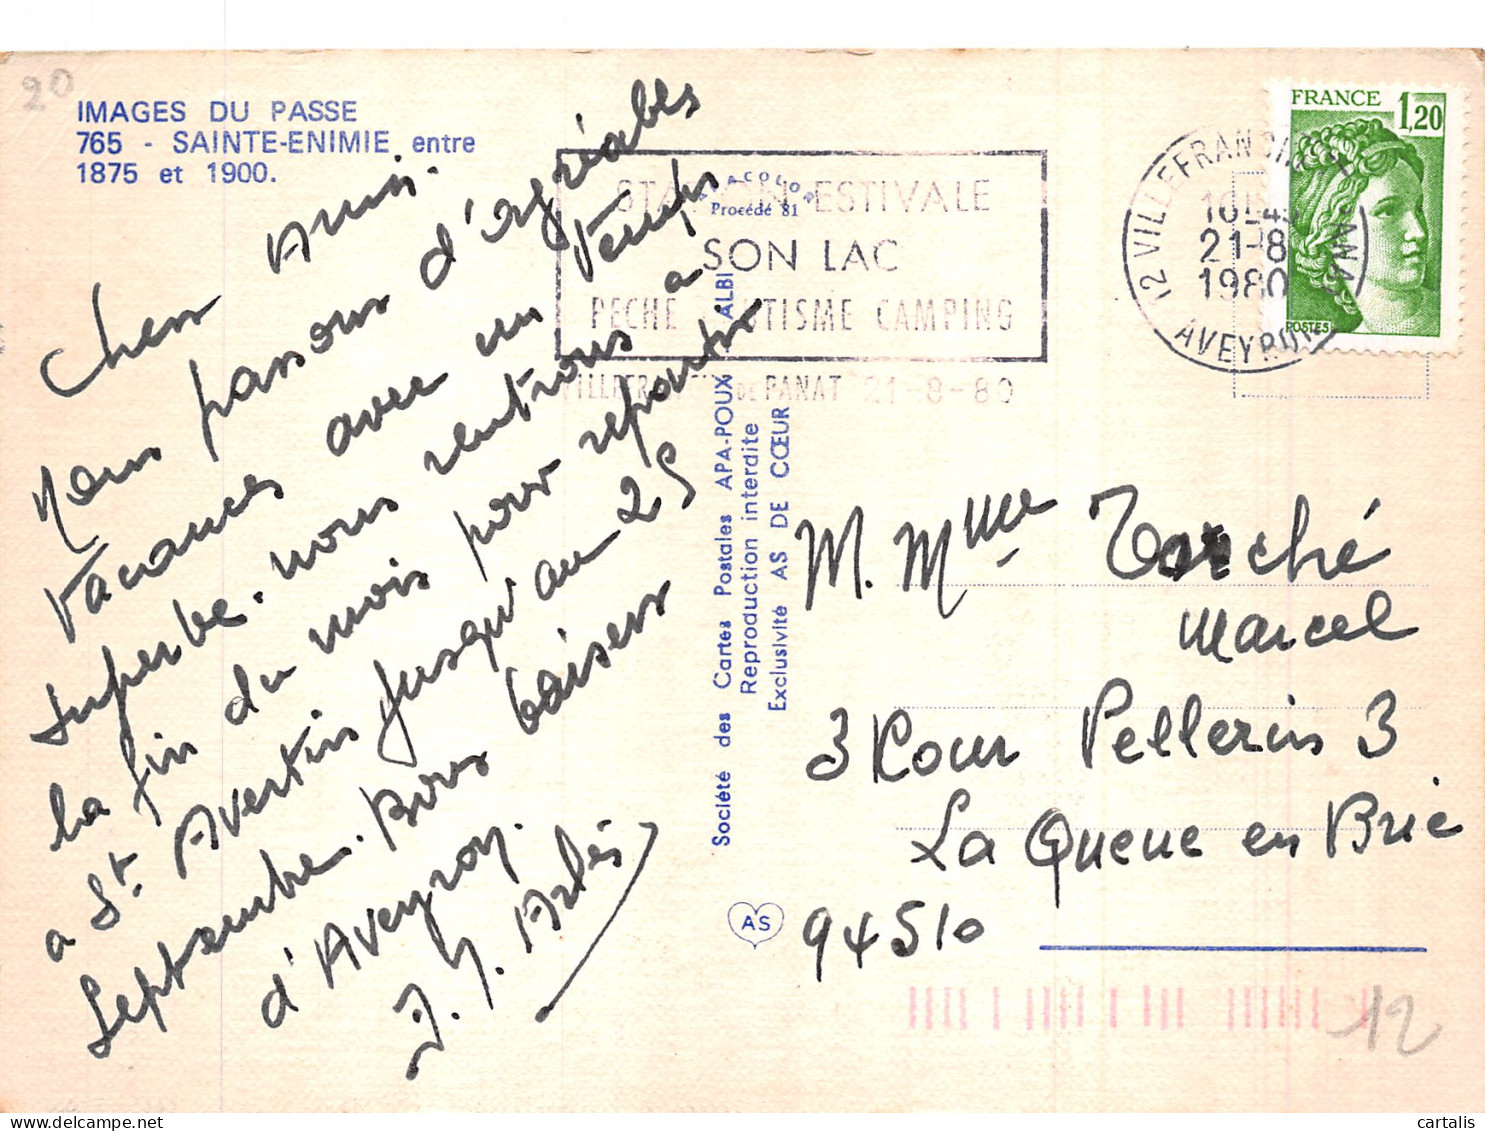 20
IMAGES DU PASSE
765 - SAINTE-ENIMIE entre
1875 et 1900.
Chers Amis.
Nous passons d'agréables
Vacances avec un Temps
Superbe. nous rentrons a
la fin du mois pour repartir
a St. Avertin jusqu'au 25
Septembre. Bons baisers
d'Aveyron.
Arlés
Procédé 81
STATION ESTIVALE
SON LAC
PECHE CAMPING
DE PANAT 21-8-80
12 VILLEFRANCHE
21-8
1980
AVEYRON
FRANCE 1,20
POSTES
Société des Cartes Postales APA-POUX ALBI
Reproduction interdite
Exclusivité AS DE CŒUR
AS
M. Mme Torché
Marcel
3 Cour Pellerin 3
La Queue en Brie
94510
12
cartalis